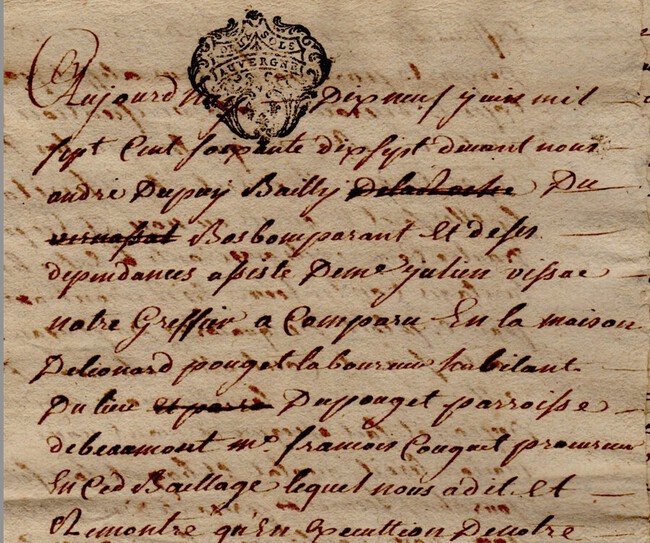 DEUX SOLS
AUVERGNE
Aujourd'huy Dix neuf juin mil
sept Cent soixante dix sept devant nous
andré Dupuy Bailly Delaroche Du
vernassal Bosbomparant et de ses
dependances assisté De me julien vissac
notre Greffier a Comparu En la maison
De leonard pouget laboureur habitant
Du lieu et parro Du pouget parroisse
de beaumont me francois Couguet procureur
En Ced Bailliage lequel nous a dit et
Remontré qu'En Execution De notre